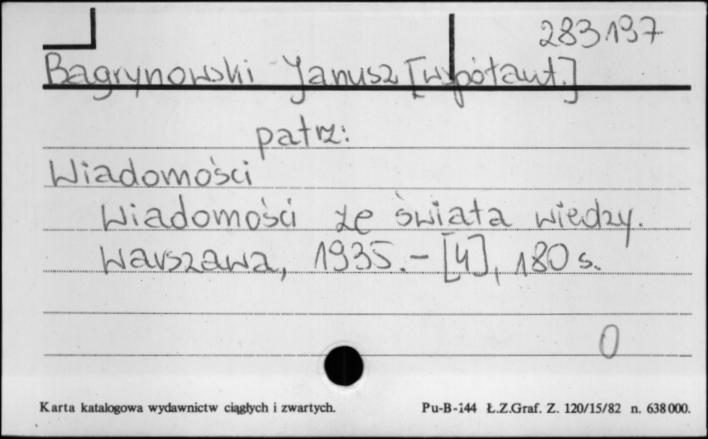 283197
Bagrynowski Janusz [współaut.]
patrz:
Wiadomości
Wiadomości ze świata wiedzy.
Warszawa, 1935. - [4], 180 s.
0
Karta katalogowa wydawnictw ciągłych i zwartych. Pu-B-144 Ł.Z.Graf. Z. 120/15/82 n. 638000.